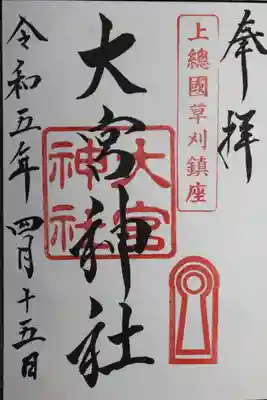 奉拝
上總國草刈鎮座
大宮神社
大宮神社
令和五年四月十五日